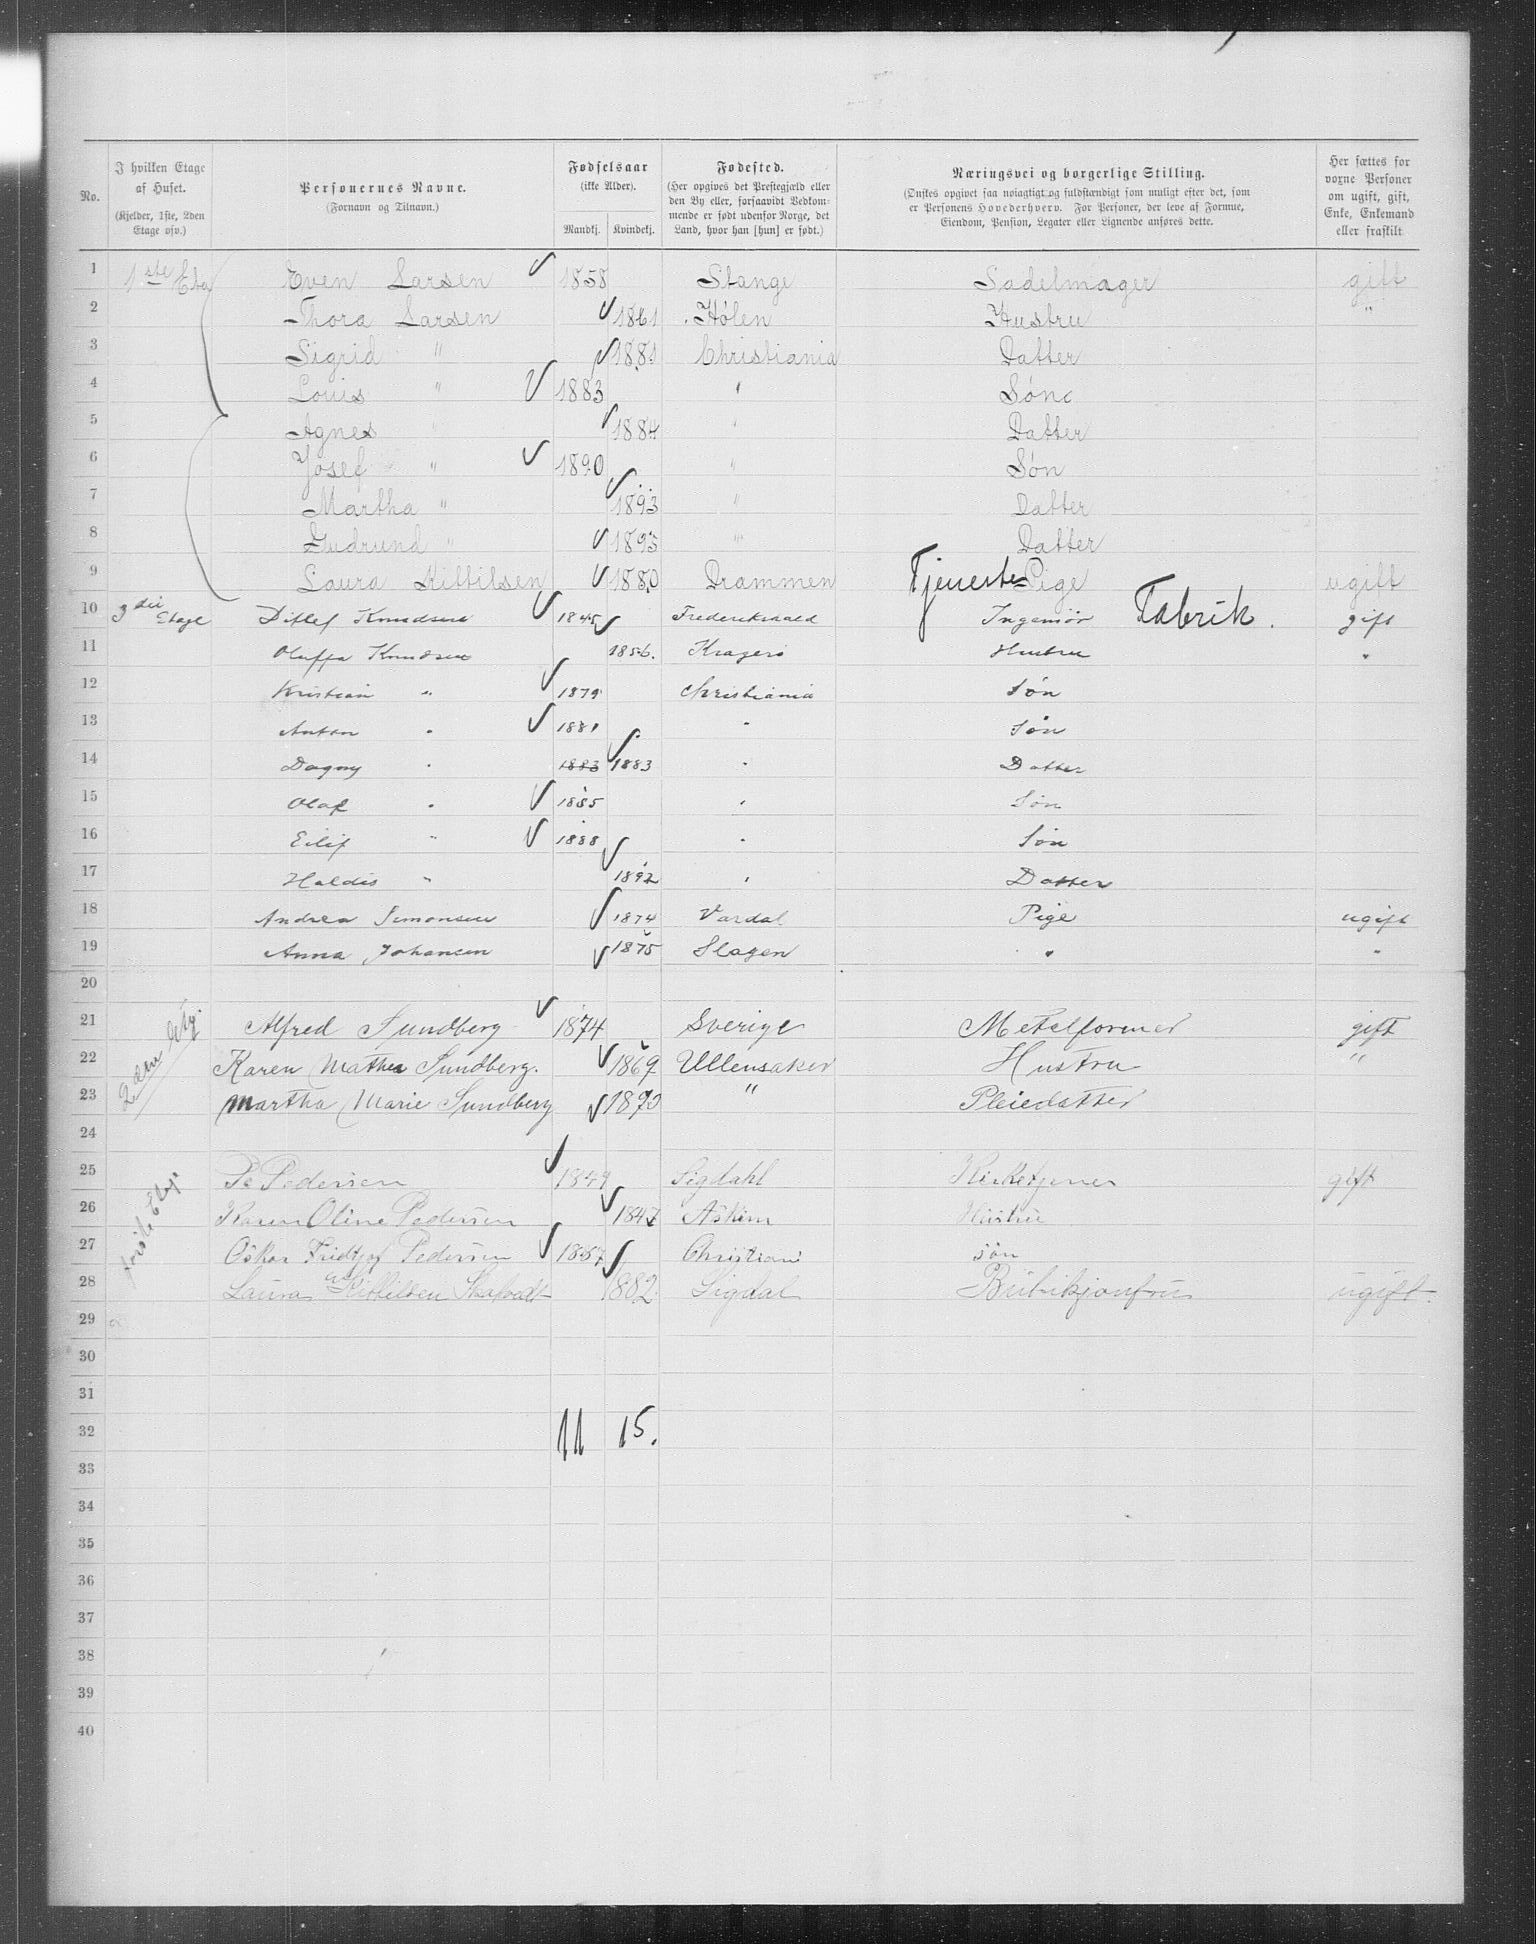 No. | I hvilken Etage af Huset. (Kjelder, 1ste, 2den Etage osv.) | Personernes Navne. (Fornavn og Tilnavn.) | Fødselsaar (ikke Alder). Mandkj. Kvindekj. | Fødested. (Her opgives det Prestegjæld eller den By eller, forsaavidt Vedkommende er født udenfor Norge, det Land, hvor han [hun] er født.) | Næringsvei og borgerlige Stilling. (Ønskes opgivet saa nøiagtigt og fuldstændigt som muligt efter det, som er Personens Hovederhverv. For Personer, der leve af Formue, Eiendom, Pension, Legater eller Lignende anføres dette. | Her sættes for voxne Personer om ugift, gift, Enke, Enkemand eller fraskilt
1 1ste Eta Even Larsen 1858 Stange Sadelmager gift
2 Thora Larsen 1861 Hølen Hustru "
3 Sigrid " 1881 Christiania Datter
4 Louis " 1883 " Sønc
5 Agnes " 1884 " Datter
6 Josef " 1890 " Søn
7 Martha " 1893 " Datter
8 Gudrund " 1893 " Datter
9 Laura Kittilsen 1880 Drammen Tjeneste=Pige ugift
10 3die Etage Ditlef Knudsen 1845 Frederiksvald Ingeniør Fabrik. gift
11 Oluffa Knudsen 1856. Kragerø Hustru "
12 Kristian " 1879 Christiania Søn
13 Anton " 1881 " Søn
14 Dagny " 1883 1883 " Datter
15 Olaf " 1885 " Søn
16 Eilif " 1888 " Søn
17 Haldis " 1892 " Datter
18 Andrea Simonsen 1874 Vardal Pige ugift
19 Anna Johansen 1875 Slagen " "
20
21 2den Etg. Alfred Sundberg 1874 Sverige Metalformer gift
22 Karen Mathea Sundberg. 1869 Ullensaker Hustru "
23 Martha Marie Sundberg 1890 " Pleiedatter
24
25 Pedersen 1849 Sigdahl Kirketjener gift
26 Karen Oline Pedersen 1847 Askim Hustru
27 Oskar Fridtjof Pedersen 1887 Christiani søn
28 Laura Kittilsen 1882 Sigdal Butikjomfru ugift.
29
30
31
32 11 15.
33
34
35
36
37
38
39
40